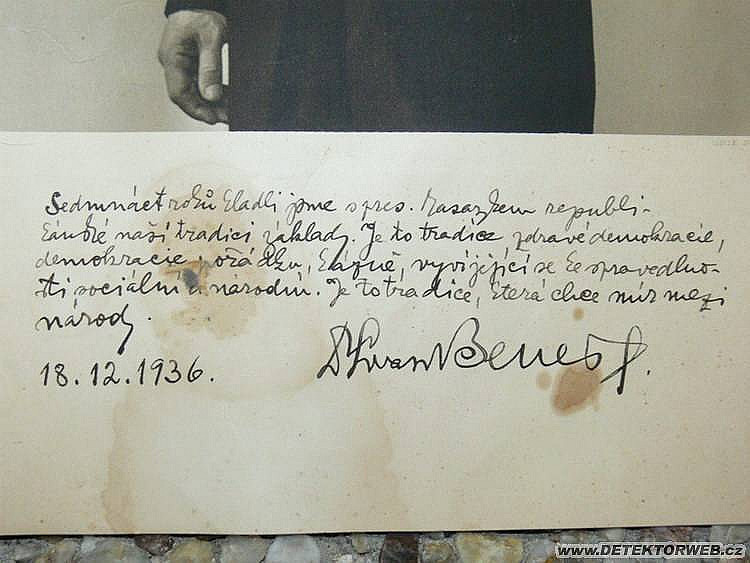 Sedmnáct roků kladli jsme s pres. Masarykem republi-
kánské naší tradici základy. Je to tradice zdravé demokracie,
demokracie pořádku, kázně, vyvíjející se ke spravedlno-
sti sociální a národní. Je to tradice, která chce mír mezi
národy.
18.12.1936.
Beneš
www.DETEKTORWEB.cz